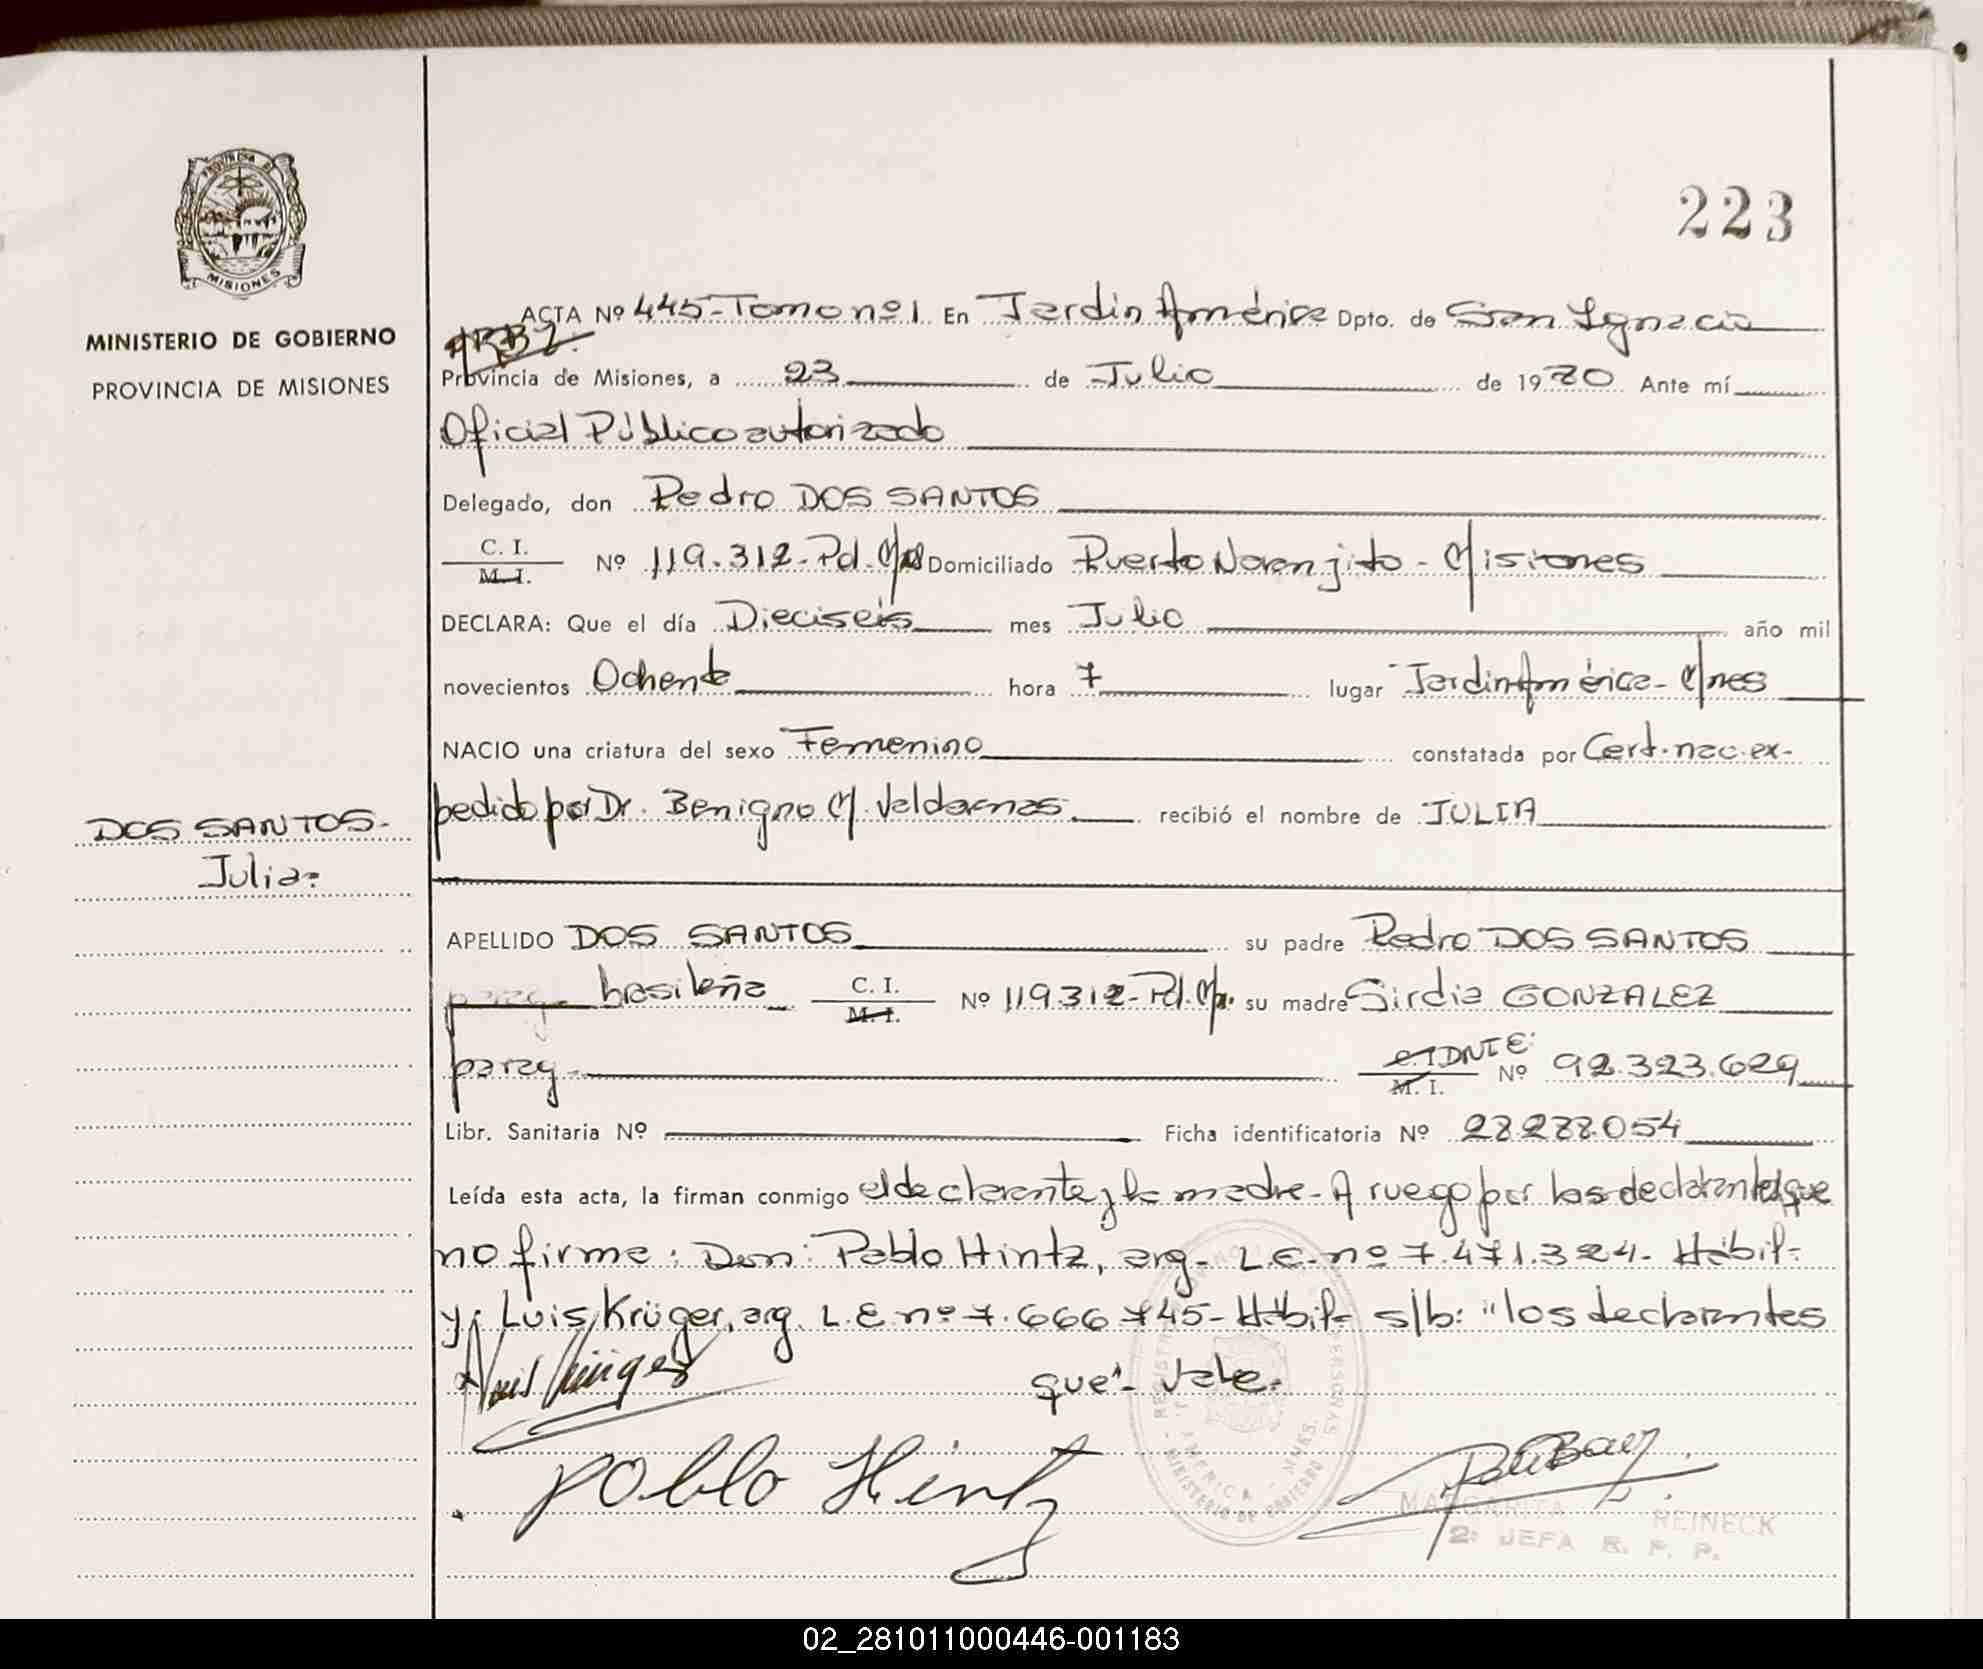 223
PROVINCIA DE
MISIONES
MINISTERIO DE GOBIERNO
PROVINCIA DE MISIONES
ACTA Nº 445-Tomo nº1. En Jardin América Dpto. de San Ignacio
Provincia de Misiones, a 23 de Julio de 1980 Ante mí
Oficial Público autorizado
Delegado, don Pedro DOS SANTOS
C. I.
M. I.
Nº 119.312-Pol.Mns Domiciliado Puerto Naranjito - Misiones
DECLARA: Que el día Dieciseis mes Julio año mil
novecientos Ochenta hora 7 lugar Jardin América - Mnes
NACIO una criatura del sexo Femenino constatada por Cert. nac. ex-
pedido por Dr. Benigno M. Valdarnas recibió el nombre de JULIA
DOS SANTOS-
Julia-
APELLIDO DOS SANTOS su padre Pedro DOS SANTOS
parag- brasileña C. I.
M. I.
Nº 119.312-Pol.Mns. su madre Sirdia GONZALEZ
parag- C.I DNTE:
M. I.
Nº 92.323.629
Libr. Sanitaria Nº Ficha identificatoria Nº 28.288.054
Leída esta acta, la firman conmigo el declarante y la madre- A ruego por los declarantes que
no firma: Don: Pablo Hintz, arg- L.E- nº 7.471.324- Hábil-
y: Luis Krüger, arg. L.E nº 7.666 745- Hábil- s/b: "los declarantes
que"- Vale.
Luis Krüger
Pablo Hintz
MINISTERIO DE GOBIERNO
AMERICA - MNES.
MARGARITA REINECK
2º JEFA R. P. P.
02_281011000446-001183